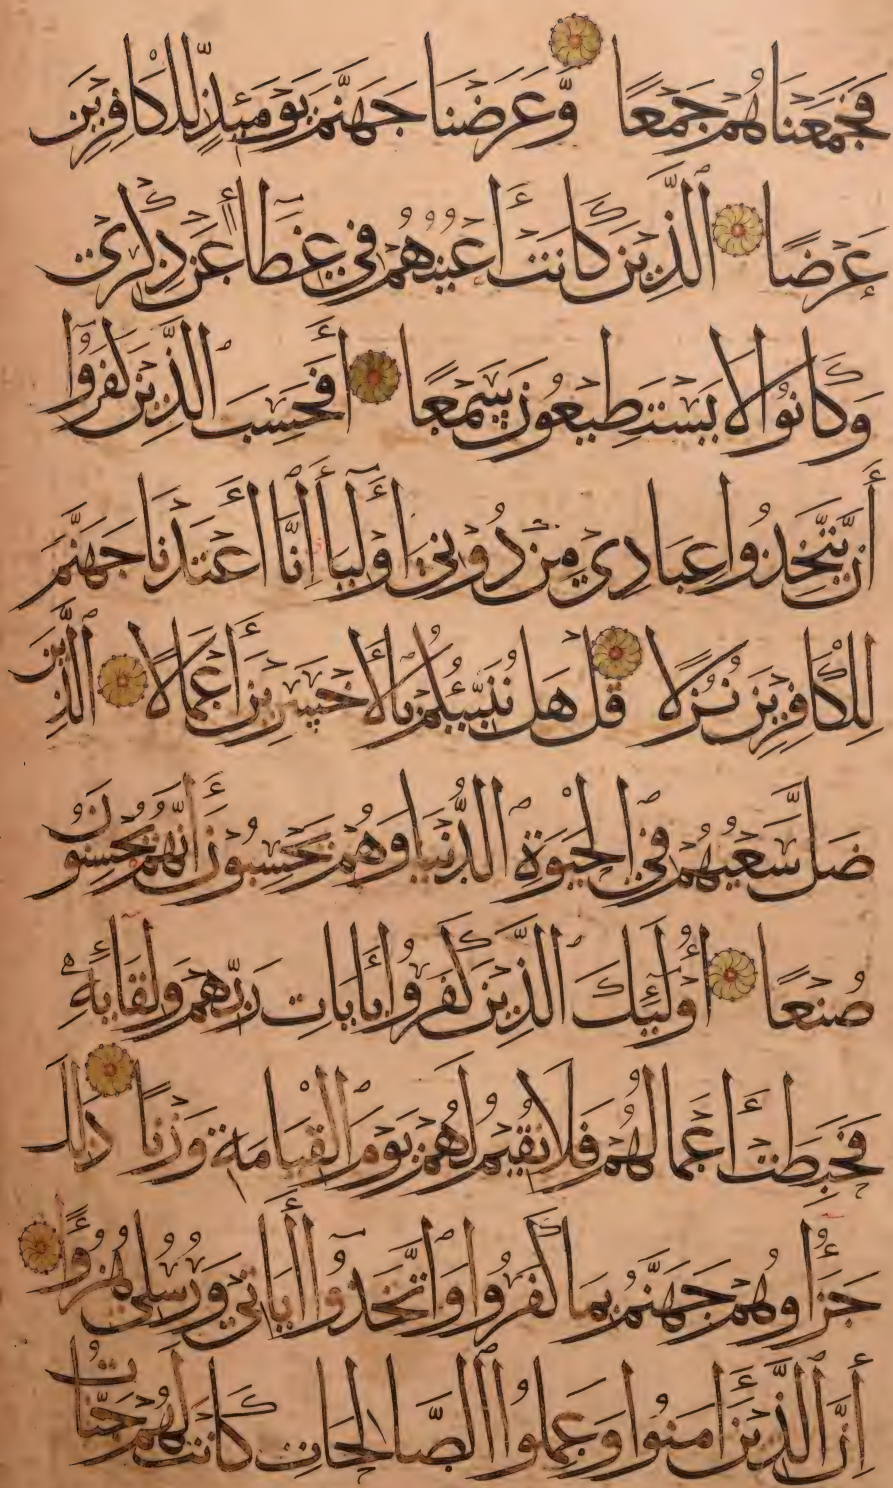 فَجَمَعْنَاهُمْ جَمْعًا وَّعَرَضْنَا جَهَنَّمَ يَوْمَئِذٍ لِّلْكَافِرِيْنَ
عَرْضًا الَّذِيْنَ كَانَتْ أَعْيُنُهُمْ فِيْ غِطَآءٍ عَنْ ذِكْرِيْ
وَكَانُوْا لَا يَسْتَطِيْعُوْنَ سَمْعًا أَفَحَسِبَ الَّذِيْنَ كَفَرُوْا
أَنْ يَّتَّخِذُوْا عِبَادِيْ مِنْ دُوْنِيْ أَوْلِيَآءَ إِنَّا أَعْتَدْنَا جَهَنَّمَ
لِلْكَافِرِيْنَ نُزُلًا قُلْ هَلْ نُنَبِّئُكُمْ بِالْأَخْسَرِيْنَ أَعْمَالًا الَّذِيْنَ
ضَلَّ سَعْيُهُمْ فِي الْحَيٰوةِ الدُّنْيَا وَهُمْ يَحْسَبُوْنَ أَنَّهُمْ يُحْسِنُوْنَ
صُنْعًا أُولَٰئِكَ الَّذِيْنَ كَفَرُوْا بِاٰيَاتِ رَبِّهِمْ وَلِقَآئِهٖ
فَحَبِطَتْ أَعْمَالُهُمْ فَلَا نُقِيْمُ لَهُمْ يَوْمَ الْقِيَامَةِ وَزْنًا ذٰلِكَ
جَزَآؤُهُمْ جَهَنَّمُ بِمَا كَفَرُوْا وَاتَّخَذُوْا اٰيَاتِيْ وَرُسُلِيْ هُزُوًا
إِنَّ الَّذِيْنَ اٰمَنُوْا وَعَمِلُوا الصَّالِحَاتِ كَانَتْ لَهُمْ جَنَّاتُ